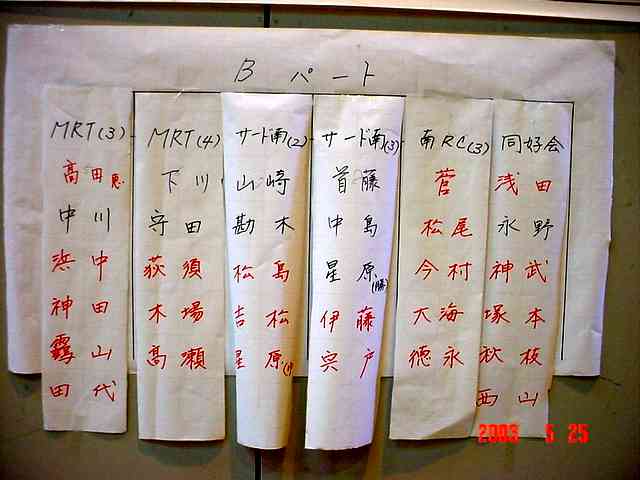 B パート
MRT(3)
高田恵
中川
浜中
神田
靏山
田代
MRT(4)
下川
守田
荻須
木場
高瀬
サード南(2)
山崎
勘木
松島
吉松
星原
サード南(3)
首藤
中島
星原(勝)
伊藤
宍戸
南RC(3)
菅
松尾
今村
大海
徳永
同好会
浅田
永野
神武
塚本
秋枝
西山
2003 5 25